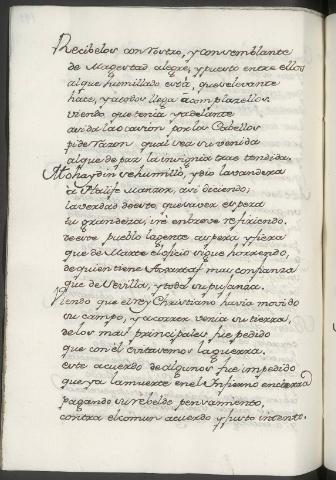 Recibelos con rostro, y con semblante
de Magestad alegre, y puesto entre ellos
al que humillado está, que se levante
hace, y a todos llega á complacellos.
viendo que tenia ya delante
asida la ocasion por los Cabellos
pide razon qual sea su venida
al que de paz la insignia trae tendida.
Mohaydin se humilló, y dio la vandera
á Khalife Manzor, asi diciendo;
la verdad de esto, que saver espera
tu grandeza, iré en breve refiriendo.
de este pueblo la gente aspera, y fiera
que de Marte el oficio sigue horrendo,
de quien tiene mas confianza
que de Sevilla, y toda su pujanza.
Viendo que el rey Christiano havia movido
su campo, y a correr venia su tierra,
de los mas principales fue pedido
que con él evitasemos la guerra.
este acuerdo de algunos fue impedido
que ya la muerte en el Infierno encierra
pagando su rebelde pensamiento,
contra el comun acuerdo, y justo intento.